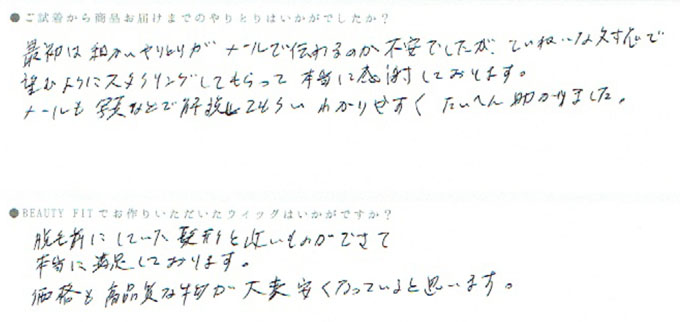 ●ご試着から商品お届けまでのやりとりはいかがでしたか？
最初は細かいやりとりがメールで伝わるのか不安でしたが、ていねいな対応で
望むようにスタイリングしてもらって本当に感謝しております。
メールも写真などで解説してもらいわかりやすくたいへん助かりました。
●BEAUTY FITでお作りいただいたウィッグはいかがですか？
脱毛前にしていた髪形と近いものができて
本当に満足しております。
価格も高品質な物が大変安くなっていると思います。